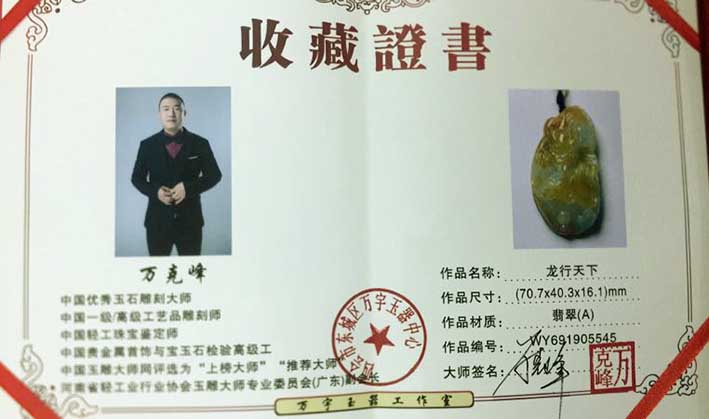 收藏證書
万克峰
中国优秀玉石雕刻大师
中国一级/高级工艺品雕刻师
中国轻工珠宝鉴定师
中国贵金属首饰与宝玉石检验高级工
中国玉雕大师网评选为“上榜大师”“推荐大师”
河南省轻工业行业协会玉雕大师专业委员会(广东)副会长
作品名称: 龙行天下
作品尺寸: (70.7x40.3x16.1)mm
作品材质: 翡翠(A)
作品编号: WY691905545
大师签名:
万克峰
四会市东城区万字玉器中心
万字玉器工作室